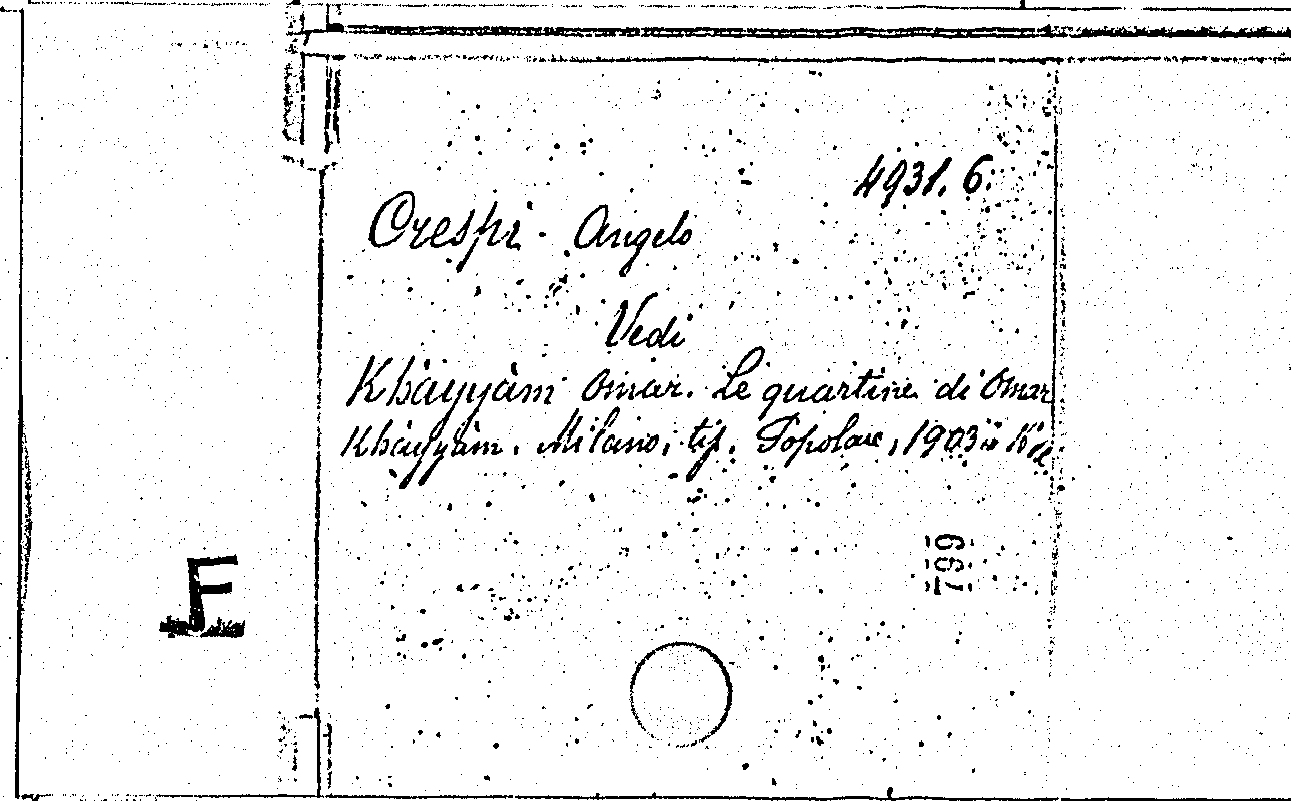 4931. 6.
Crespi - Angelo
Vedi
Khàyyàm Omar. Le quartine di Omar
Khàyyàm. Milano, tip. Popolare, 1903 in
799
F